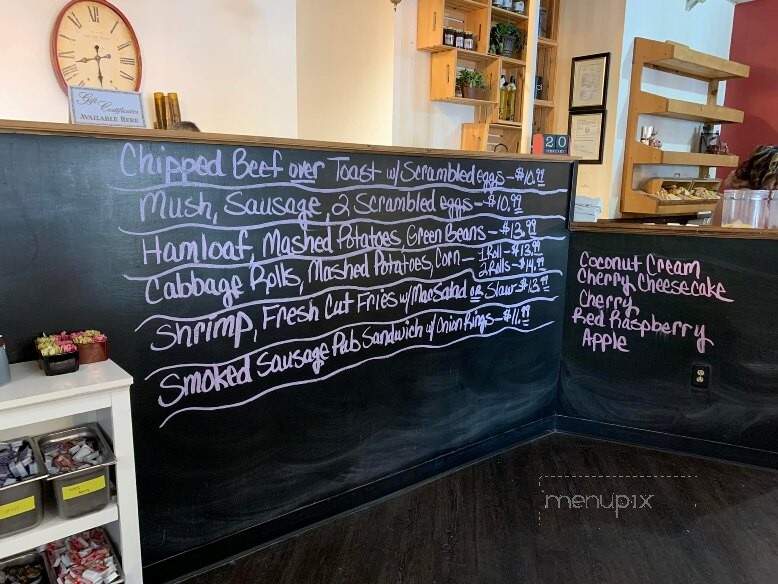 Gift Certificates
AVAILABLE HERE
20
Chipped Beef over Toast w/ Scrambled eggs - $10.99
Mush, Sausage, 2 Scrambled eggs - $10.99
Hamloaf, Mashed Potatoes, Green Beans - $13.99
Cabbage Rolls, Mashed Potatoes, Corn - 1 Roll - $13.99
2 Rolls - $14.99
Shrimp, Fresh Cut Fries w/ Mac Salad or Slaw - $13.99
Smoked Sausage Pub Sandwich w/ Onion Rings - $11.99
Coconut Cream
Cherry Cheesecake
Cherry
Red Raspberry
Apple
menupix